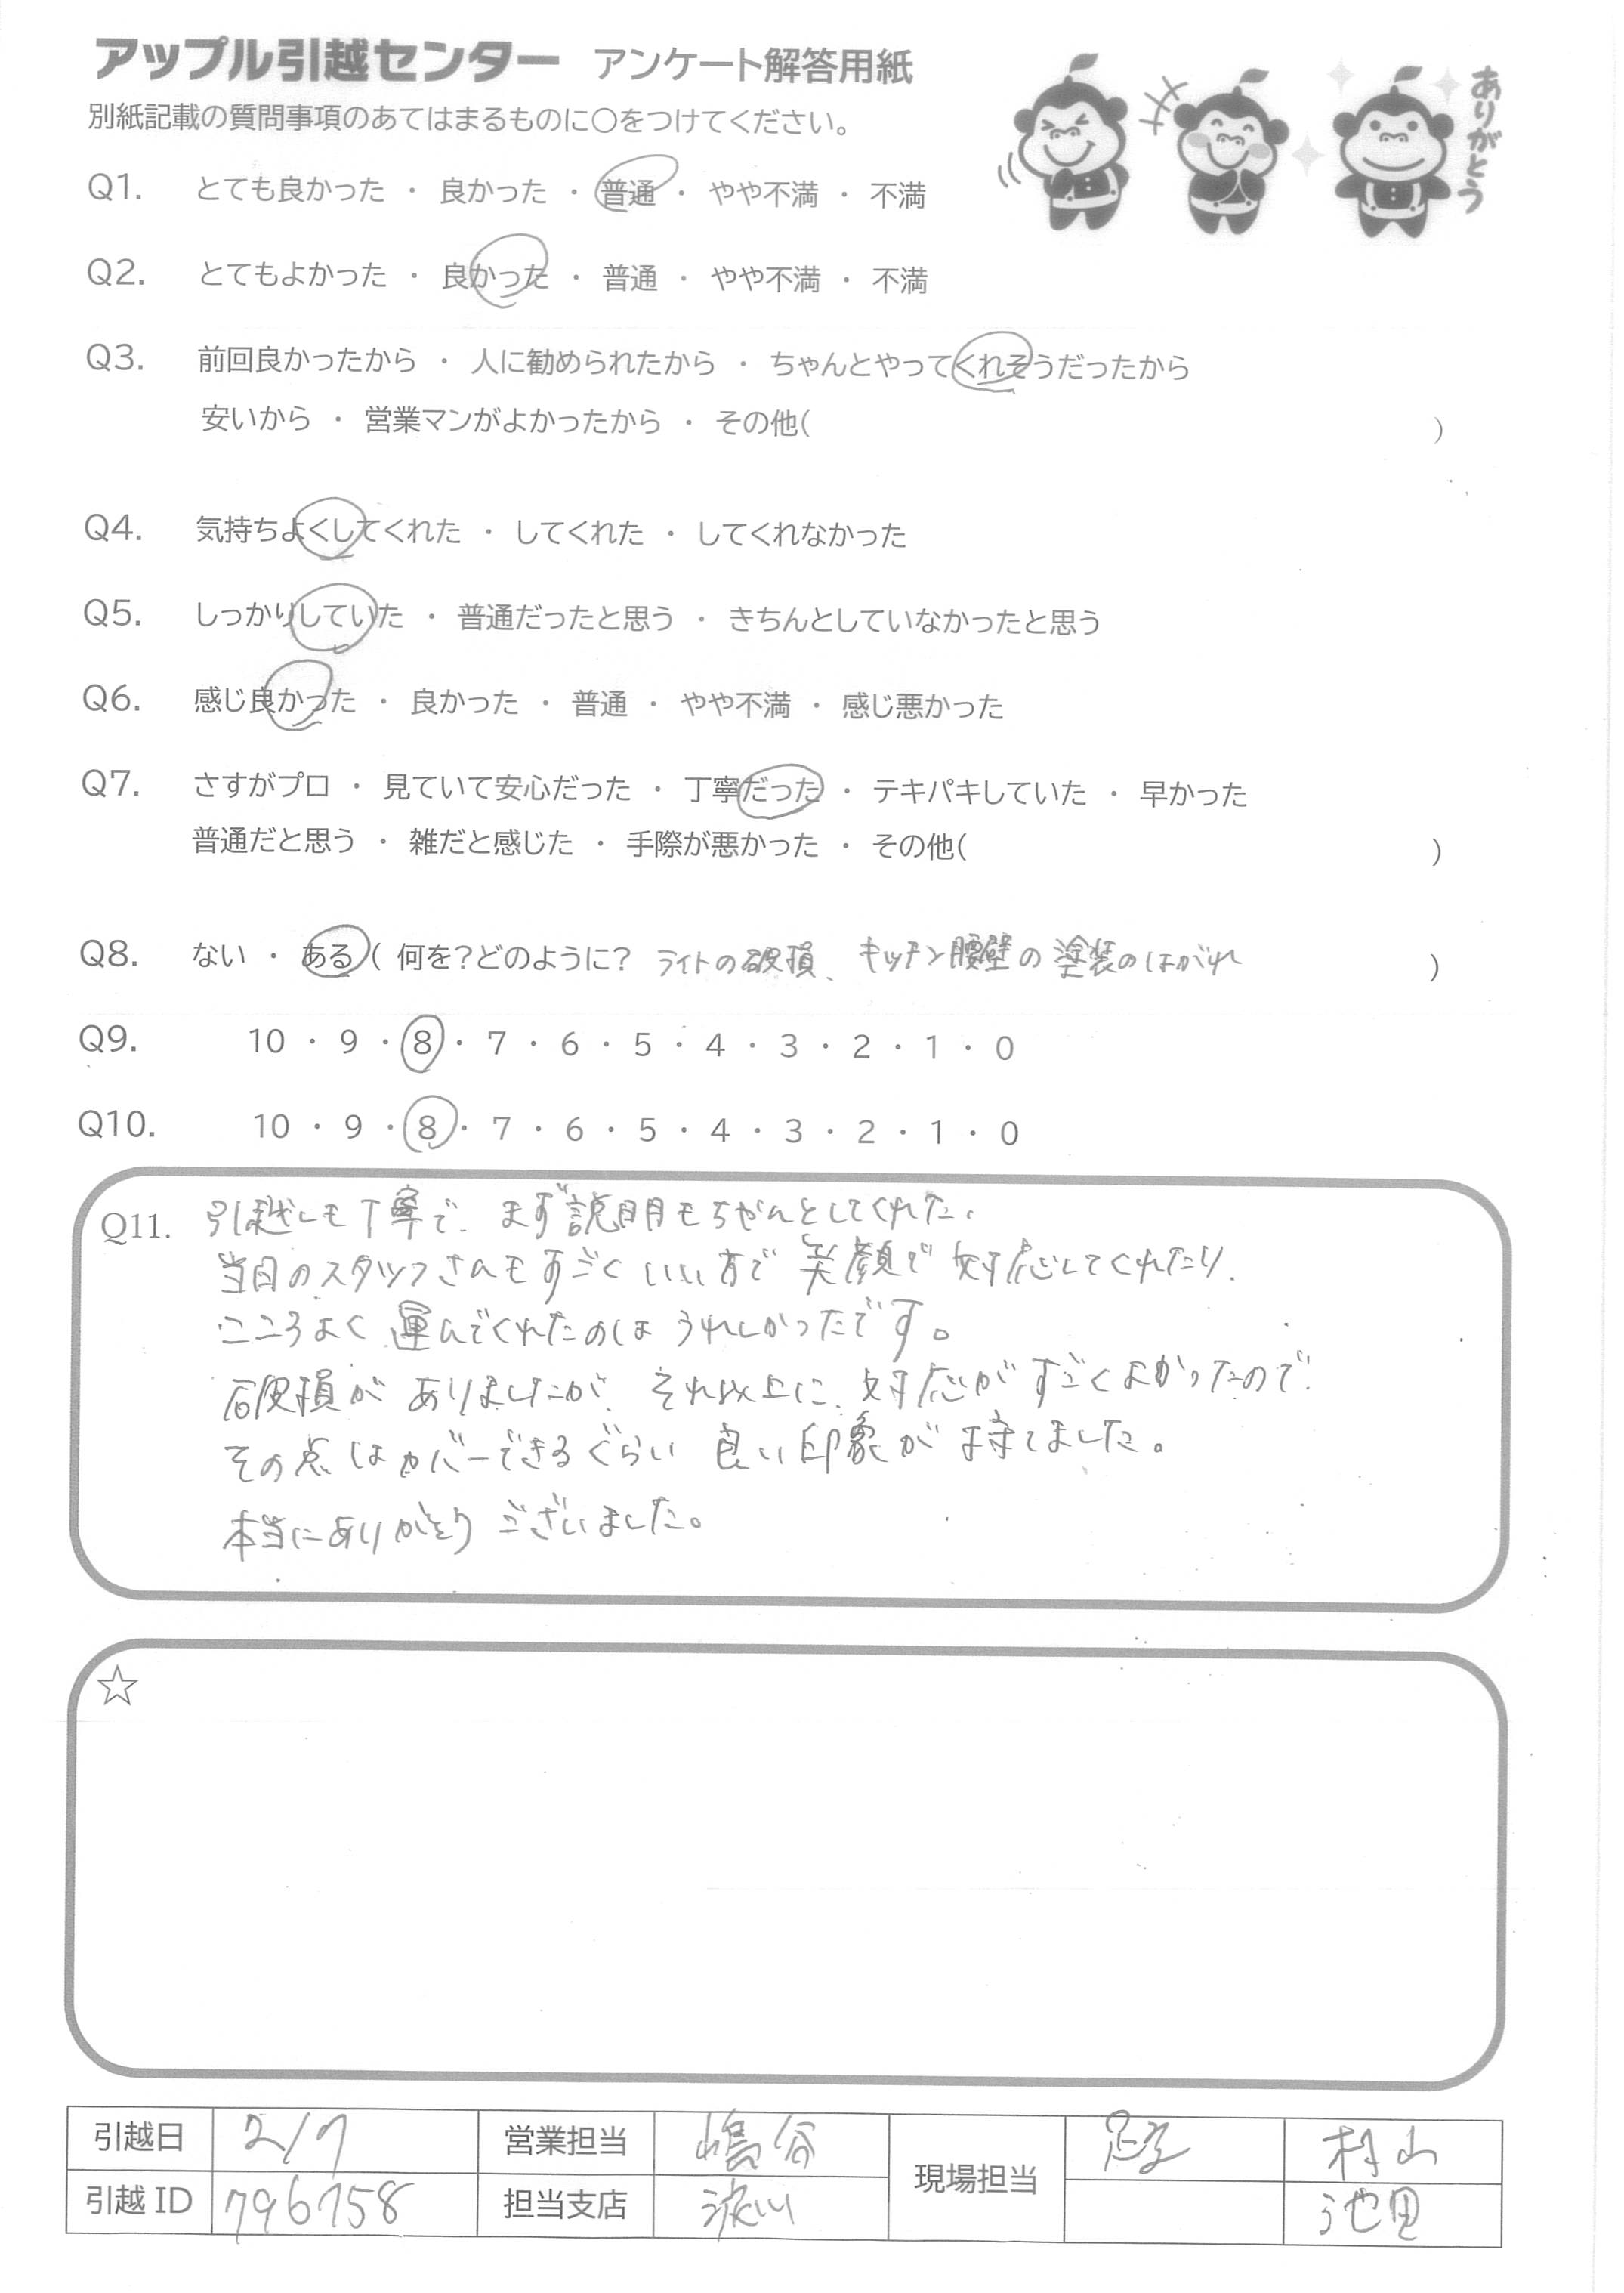 アップル引越センター アンケート解答用紙
別紙記載の質問事項のあてはまるものに○をつけてください。
ありがとう
Q1. とても良かった ・ 良かった ・ 普通 ・ やや不満 ・ 不満
Q2. とてもよかった ・ 良かった ・ 普通 ・ やや不満 ・ 不満
Q3. 前回良かったから ・ 人に勧められたから ・ ちゃんとやってくれそうだったから
安いから ・ 営業マンがよかったから ・ その他( )
Q4. 気持ちよくしてくれた ・ してくれた ・ してくれなかった
Q5. しっかりしていた ・ 普通だったと思う ・ きちんとしていなかったと思う
Q6. 感じ良かった ・ 良かった ・ 普通 ・ やや不満 ・ 感じ悪かった
Q7. さすがプロ ・ 見ていて安心だった ・ 丁寧だった ・ テキパキしていた ・ 早かった
普通だと思う ・ 雑だと感じた ・ 手際が悪かった ・ その他( )
Q8. ない ・ ある ( 何を?どのように? ライトの破損、キッチン腰壁の塗装のはがれ )
Q9. 10 ・ 9 ・ 8 ・ 7 ・ 6 ・ 5 ・ 4 ・ 3 ・ 2 ・ 1 ・ 0
Q10. 10 ・ 9 ・ 8 ・ 7 ・ 6 ・ 5 ・ 4 ・ 3 ・ 2 ・ 1 ・ 0
Q11. 引越しも丁寧で、まず説明もちゃんとしてくれた。
当日のスタッフさんもすごくいい方で笑顔で対応してくれたり、
こころよく運んでくれたのはうれしかったです。
破損がありましたが、それ以上に、対応がすごくよかったので
その点はカバーできるぐらい良い印象が持てました。
本当にありがとうございました。
☆
引越日 2/7 営業担当 嶋谷 現場担当 村山
引越 ID 796758 担当支店 池田